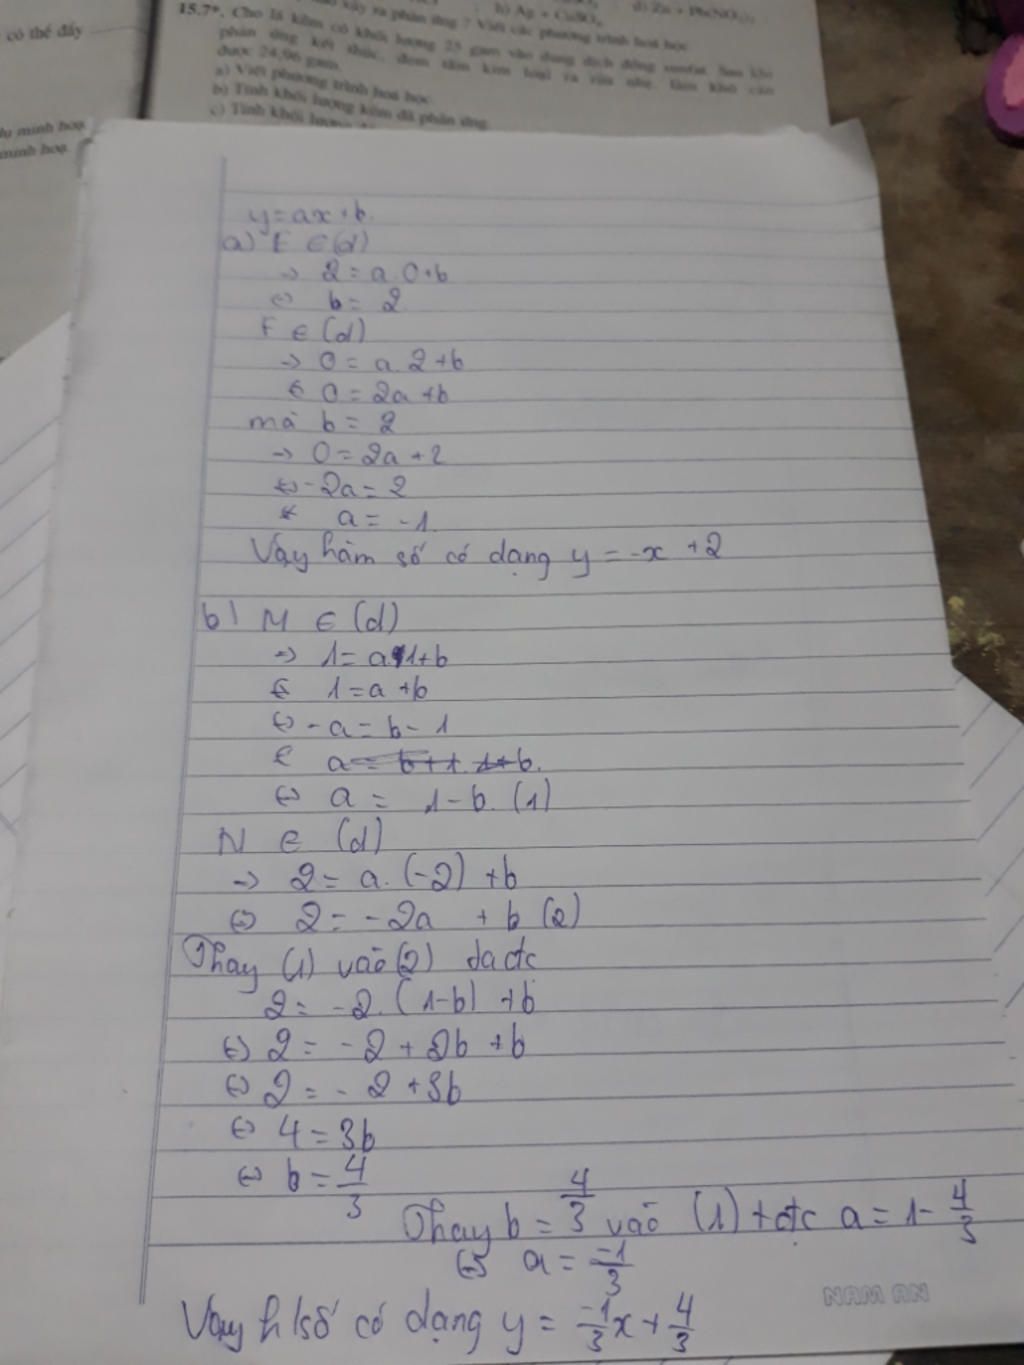 có thể đẩy
minh hoạ
minh hoạ
b) Ag + CuSO₄
15.7*. Cho lá kẽm có khối lượng 25 gam vào dung dịch đồng sunfat. Sau khi
phản ứng kết thúc, đem tấm kim loại ra rửa nhẹ, làm khô cân
được 24,96 gam.
a) Viết phương trình hoá học.
b) Tính khối lượng kẽm đã phản ứng.
c) Tính khối lượng
y = ax + b.
a) E ∈ (d)
→ 2 = a.0 + b
⇔ b = 2
F ∈ (d)
→ 0 = a.2 + b
⇔ 0 = 2a + b
mà b = 2
→ 0 = 2a + 2
⇔ -2a = 2
⇔ a = -1.
Vậy hàm số có dạng y = -x + 2
b) M ∈ (d)
→ 1 = a.1 + b
⇔ 1 = a + b
⇔ -a = b - 1
⇔ a = b + 1. 1 + b.
⇔ a = 1 - b. (1)
N ∈ (d)
→ 2 = a.(-2) + b
⇔ 2 = -2a + b (2)
Thay (1) vào (2) ta đc
2 = -2.(1-b) + b
⇔ 2 = -2 + 2b + b
⇔ 2 = -2 + 3b
⇔ 4 = 3b
⇔ b = 4/3
Thay b = 4/3 vào (1) tđc a = 1 - 4/3
⇔ a = -1/3
NAM AN
Vậy h/số có dạng y = -1/3x + 4/3